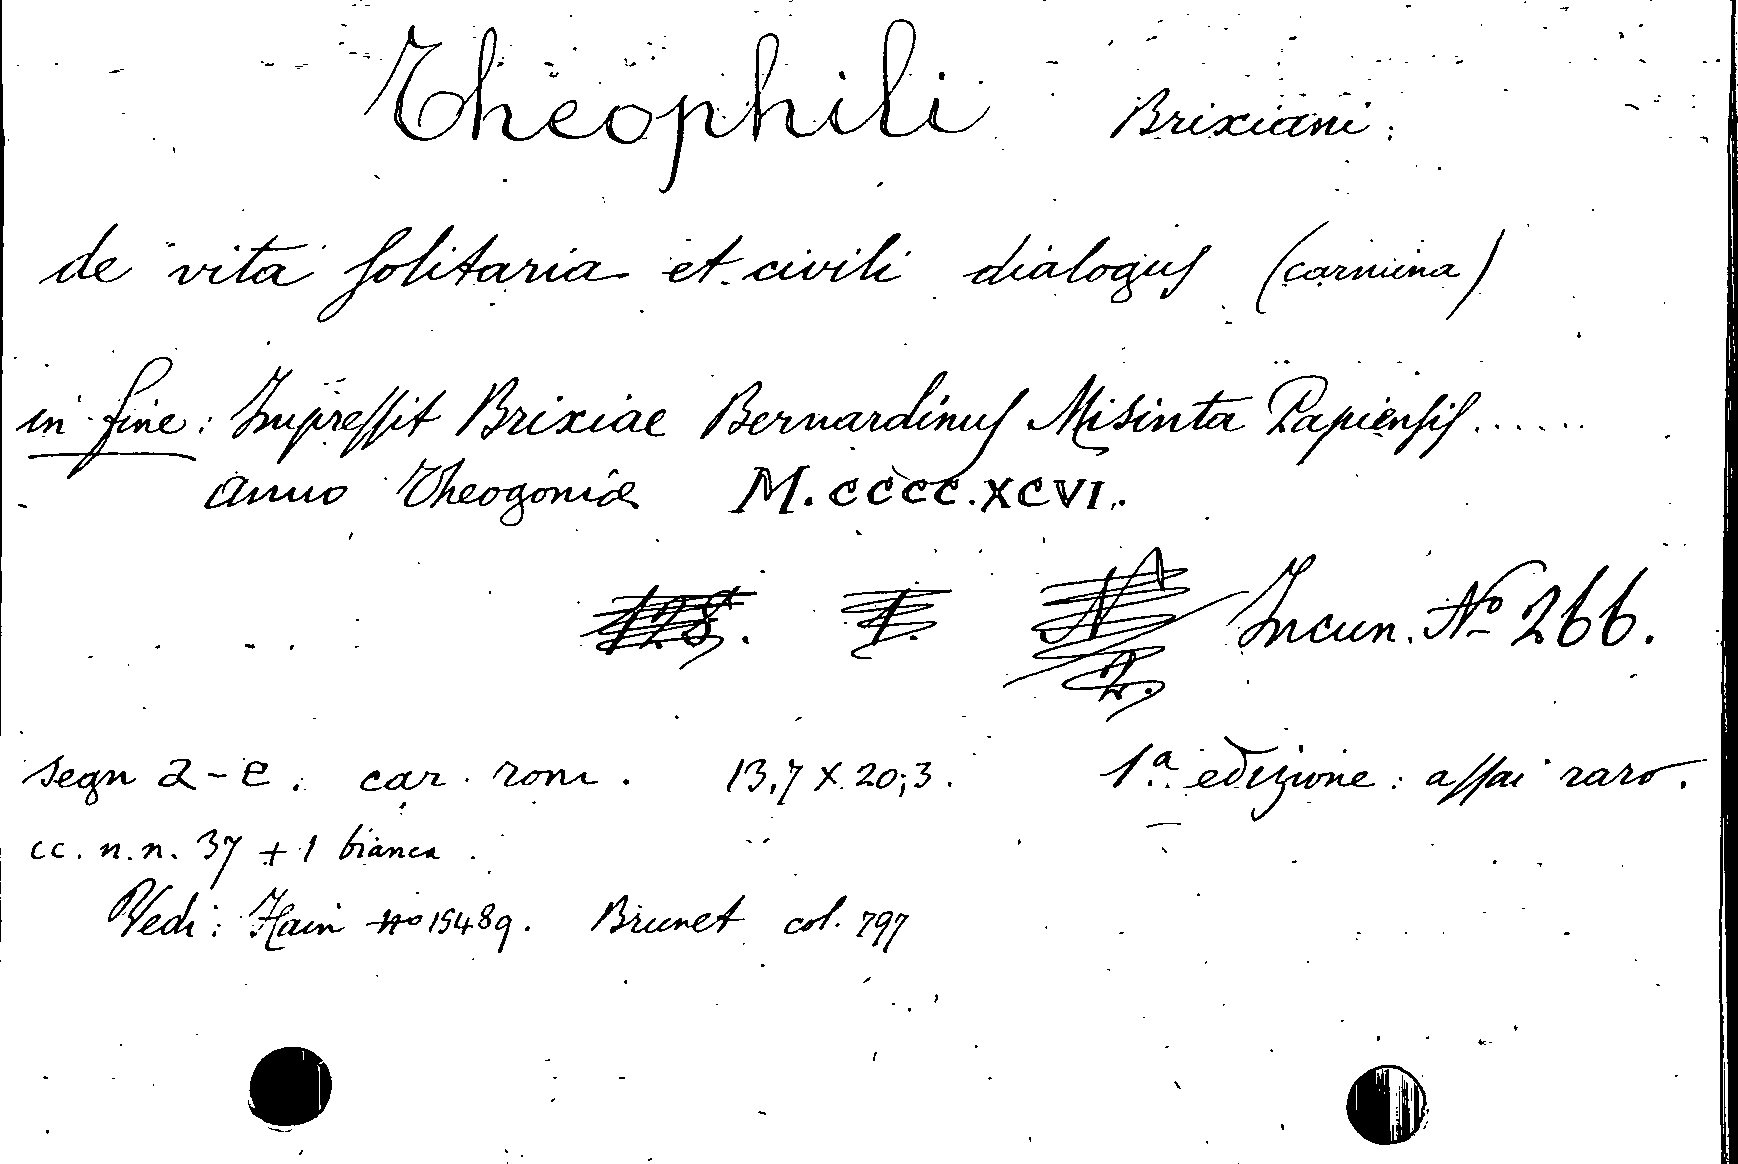 Theophili Brixiani:
de vita solitaria et civili dialogus (carmina)
in fine: Impressit Brixiae Bernardinus Misinta Papiensis......
anno Theogoniæ M.CCCC.XCVI.
128. 1. N 2. Incun. Nº 266.
segn a-e. car. rom. 13,7 X 20,3. 1ª edizione: assai raro.
cc. n.n. 37 + 1 bianca.
Vedi: Hain nº 15489. Brunet col. 797